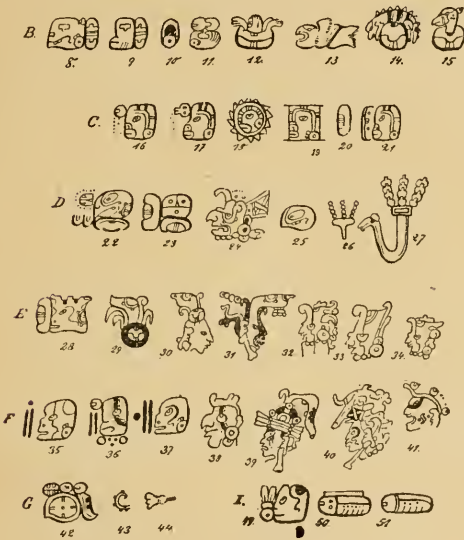 B.
8. 9 10 11. 12. 13 14. 15
C.
16 17 18 19 20 21
D
22 23 24 25 26 27
E
28 29 30 31 32 33 34.
F
35 36 37 38 39 40 41.
G I.
42 43 44 49. 50 51